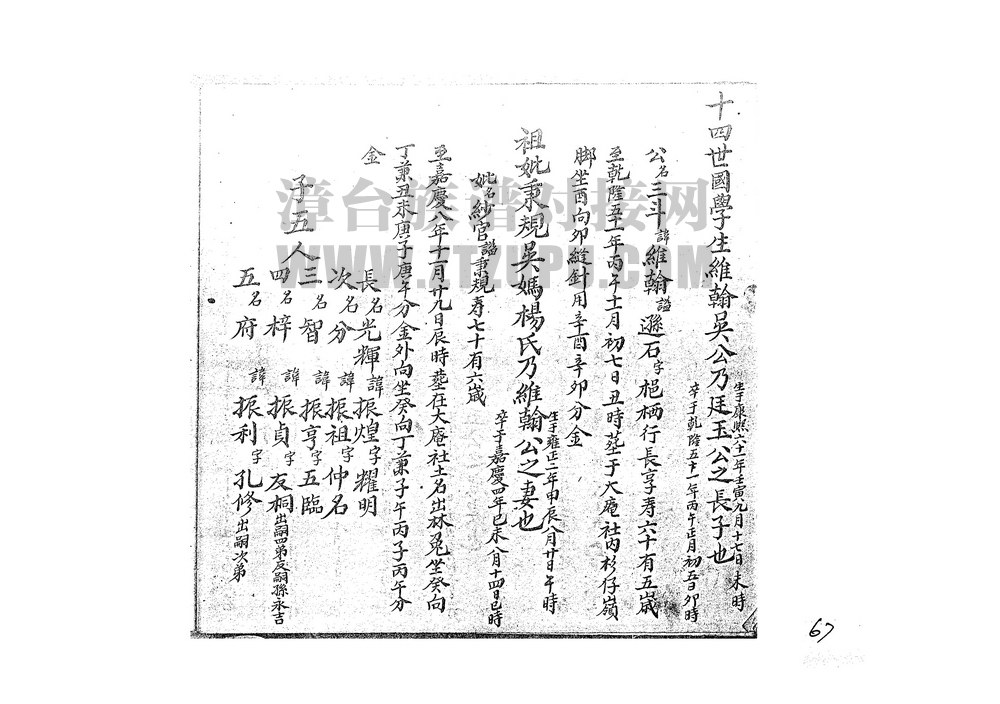 十四世國學生維翰吳公乃廷玉公之長子也
生于康熙六十一年壬寅九月十七日未時
卒于乾隆五十一年丙午正月初五日卯時
公名三斗諱維翰諡遜石字梔栖行長享寿六十有五歲
至乾隆五十一年丙午十一月初七日丑時塟于大庵社内杉仔嶺
脚坐酉向卯縫針用辛酉辛卯分金
祖妣秉規吳媽楊氏乃維翰公之妻也
生于雍正二年甲辰八月廿日午時
卒于嘉慶四年已未八月十四日巳時
妣名紗官諡秉規寿七十有六歲
至嘉慶八年十一月廿九日辰時塟在大庵社土名出林兔坐癸向
丁兼丑未庚子庚午分金外向坐癸向丁兼子午丙子丙午分
金
子五人
長名光輝諱振煌字耀明
次名分諱振祖字仲名
三名智諱振亨字五臨
四名梓諱振貞字友桐出嗣四弟反嗣孫永吉
五名府諱振利字孔修出嗣次弟
漳台族谱对接网
67